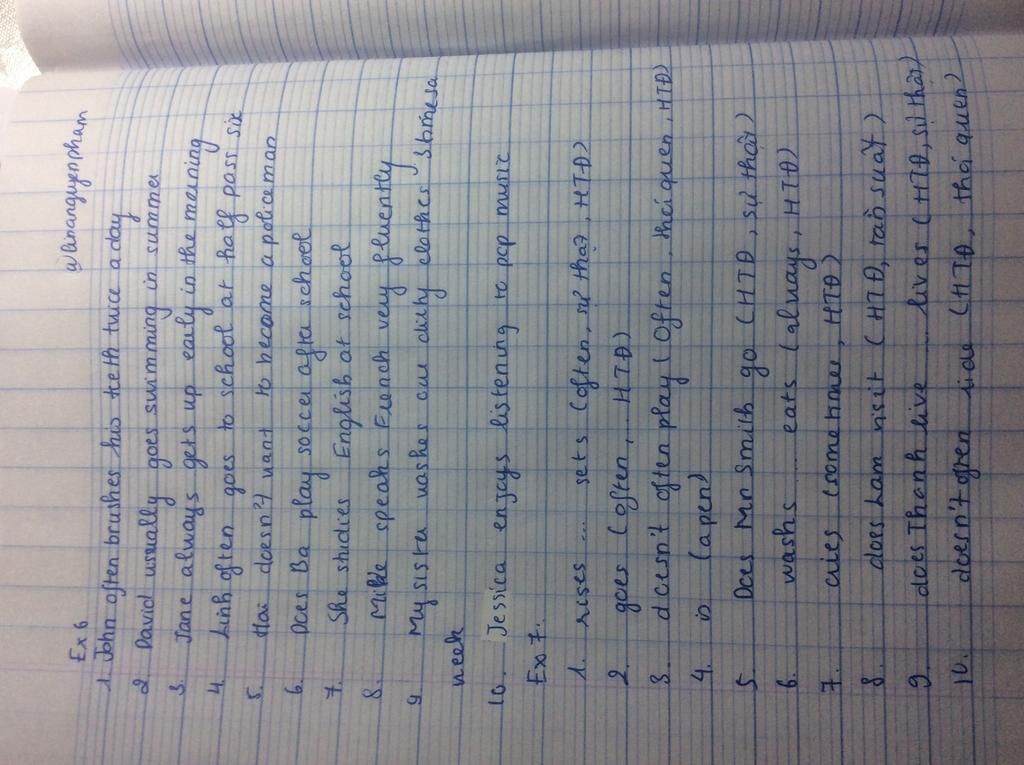 @linanguyenpham
Ex 6
1. John often brushes his teeth twice a day
2 David usually goes swimming in summer
3. Jane always gets up early in the morning
4. Linh often goes to school at half pass six
5. Hai doesn't want to become a policeman
6. Does Ba play soccer after school
7. She studies English at school
8. speaks French very fluently
9 My sister washes our dirty clothes 3 times a
week
10. Jessica enjoys listening to pop music
Ex 7.
1. rises ... sets (often, sự thật, HTĐ)
2. goes (often, HTĐ)
3. doesn't often play (Often, thói quen, HTĐ)
4. is (open)
5 Does Mr Smith go (HTĐ, sự thật)
6. washs ..... eats (always, HTĐ)
7. cries (sometimes, HTĐ)
8. does Lam visit (HTĐ, tần suất)
9. does Thanh live ..... lives (HTĐ, sự thật)
10. doesn't often ride (HTĐ, thói quen)